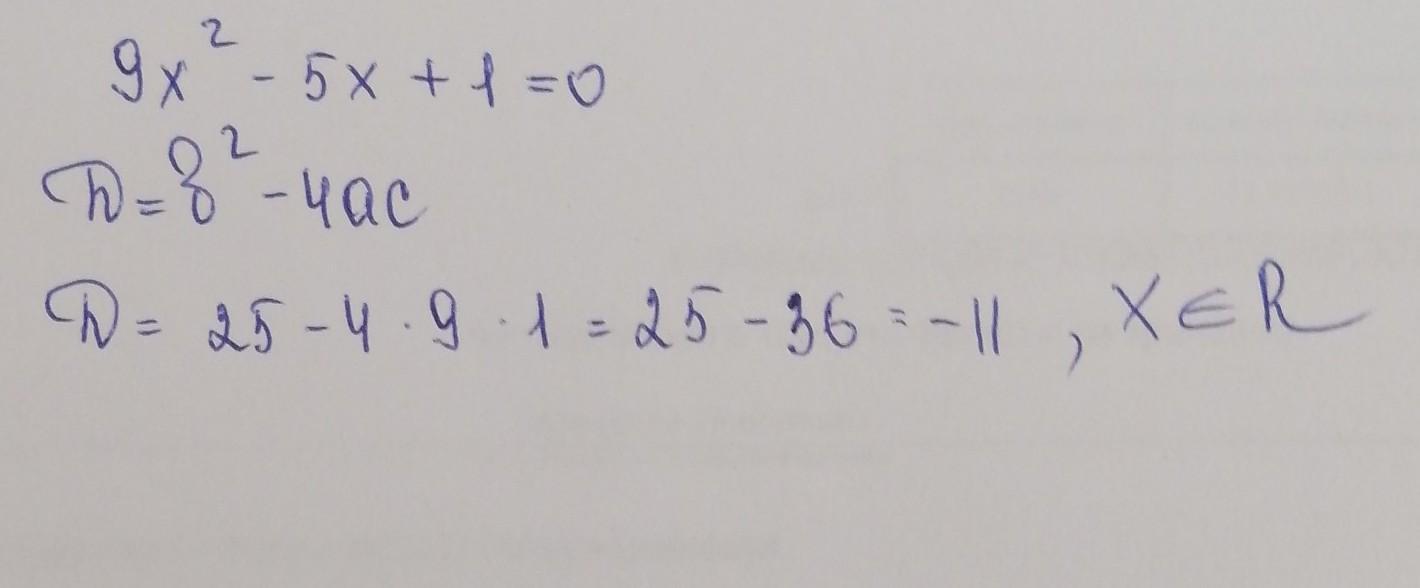 9x² - 5x + 1 = 0
D = b² - 4ac
D = 25 - 4 · 9 · 1 = 25 - 36 = -11 , X ∈ R